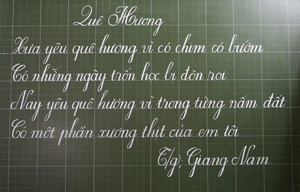 Quê Hương
...Xưa yêu quê hương vì có chim có bướm
Có những ngày trốn học bị đòn roi
Nay yêu quê hương vì trong từng nắm đất
Có một phần xương thịt của em tôi
T/g: Giang Nam